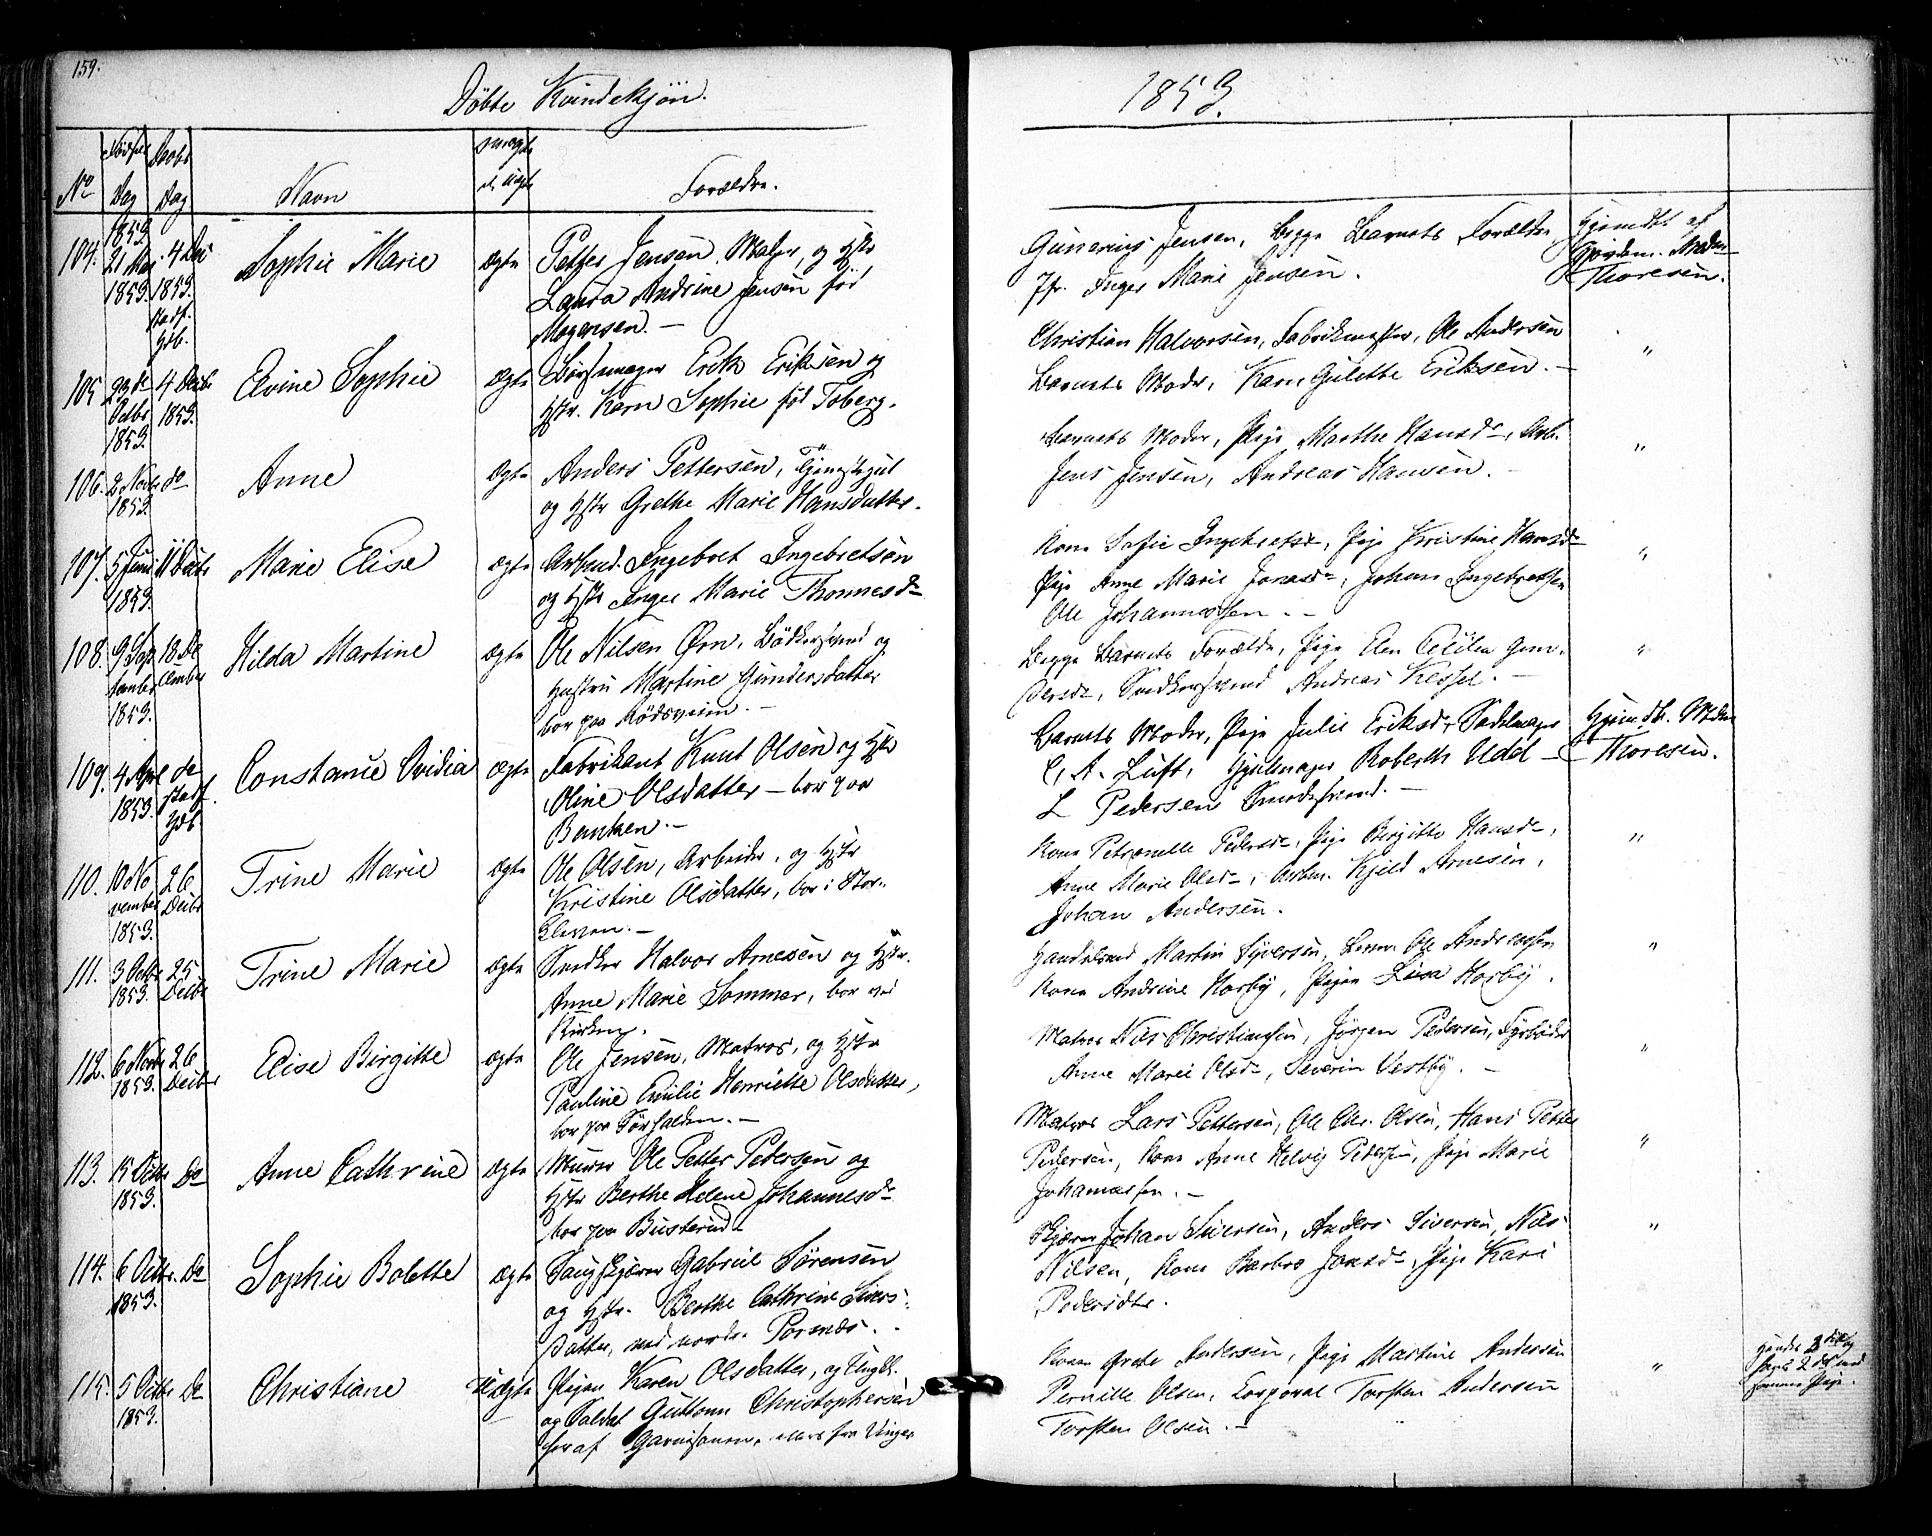 159.
Döbte Kvindekjön.
1853.
No
Dag
Dag
Navn
Forældre.
104. 21 Maj 1853 4 Dec 1853. Sophie Marie ægte Petter Jensen, Maler, og Hstr
Laura Andrine Jensen föd
Mogensen. —
Gunerius Jensen, begge Barnets Forældre
Jfr. Inger Marie Jensen.
Hjemdbt af
Thoresen.
105 23de Octbr 1853. 4 Decbr 1853. Elvine Sophie ægte Erik Eriksen og
Hstr. Karn Sophie föd Toberg.
Christian Halvorsen, Fabrikmester, Ole Andersen
Barnets Moder, Karn Gulette Eriksen. —
"
106. 2 Novbr 1853 do Anne ægte Anders Pettersen,
og Hstr Grethe Marie Hansdatter.
Barnets Moder, Pige Marthe Hansdr, Arb.
Jens Jensen, Andreas Hansen. -
"
107. 5 Juni 1853. 11 Decbr Marie Elise ægte Arbmd. Ingebret Ingebretsen
og Hstr Inger Marie Thommesdr
Kone Sofie Ingebretsdr, Pige Kristine Hansdr
Pige Anne Marie Jonasdr, Johan Ingebretsen
Ole Johannessen. -
"
108. 9 September 1853. 18 December Hilda Martine ægte Ole Nilsen Örn, Bödkersvend og
Hustru Martine Gundersdatter
bor paa Rödsveien. —
Begge Barnets Forældre, Pige Elen Cecilia Gun-
dersdr, Snedkersvend Andreas Kessel. —
"
109. 4 April 1853. do stadf. Hdb. Constance Ovidia ægte Fabrikant Knut Olsen og Hstr
Oline Olsdatter — bor paa
Banken. —
Barnets Moder, Pige Julie Eriksdr, Sadelmager
C. A. Luft, Hjulmager Roberth Udd —
L Pedersen Smedesvend. —
Hjemdbt.
Thoresen.
110. 10 November 1853. 26 Decbr Trine Marie ægte Ole Olsen, Arbeider, og Hstr
Kristine Olsdatter, bor i Stor-
Kone Petronelle Pedersdr, Pige Birgitte Hansdr,
Anne Marie Olsdr, Arbm. Kjeld Arnesen,
Johan Andersen.
"
111. 3 Octbr 1853. 25 Decbr Trine Marie ægte Snedker Halvor Arnesen og Hstr.
Anne Marie Sommer, bor ved
Kirken.
Martin Syversen, Ole Andreassen
Kone Andrine Horby, Pigen Lisa Horby.
"
112. 6 Novbr 1853. 26 Decbr Elise Birgitte ægte Ole Jensen, Matros, og Hstr
Pauline Emilie Henriette Olsdatter,
bor paa Sörhalden. —
Matros Nils Christiansen, Jörgen Pedersen, Fyrböder
Anne Marie Olsdr, Severin Vestby. -
"
113. 15 Octbr 1853. Do Anne Cathrine ægte Murer Ole Petter Pedersen og
Hstr Berthe Helene Johannesdr
bor paa Busterud
Matros Lars Pettersen, Ole Chr. Olsen, Hans Petter
Pedersen, Kone Anne Helvig Pedersen, Pige Marie
Johannessen. —
"
114. 6 Octbr. 1853. Do Sophie Bolette ægte Gabriel Sörensen
og Hstr. Berthe Cathrine Sivers-
datter, ved nordre
Johan Siversen, Anders Siversen, Nils
Nilsen, Kone Barbro Jensdr, Pige Kari
Pedersdtr.
"
115. 5 Octbr 1853. Do Christiane Uægte Pigen Karen Olsdatter, og Ungk.
og Soldat Guttorm Christophersen
her af Garnisonen,
Konen Grete Andersen, Pige Martine Andersen
Pernille Olsen, Corporal Torsten Andersen
Torsten Olsen. —
"